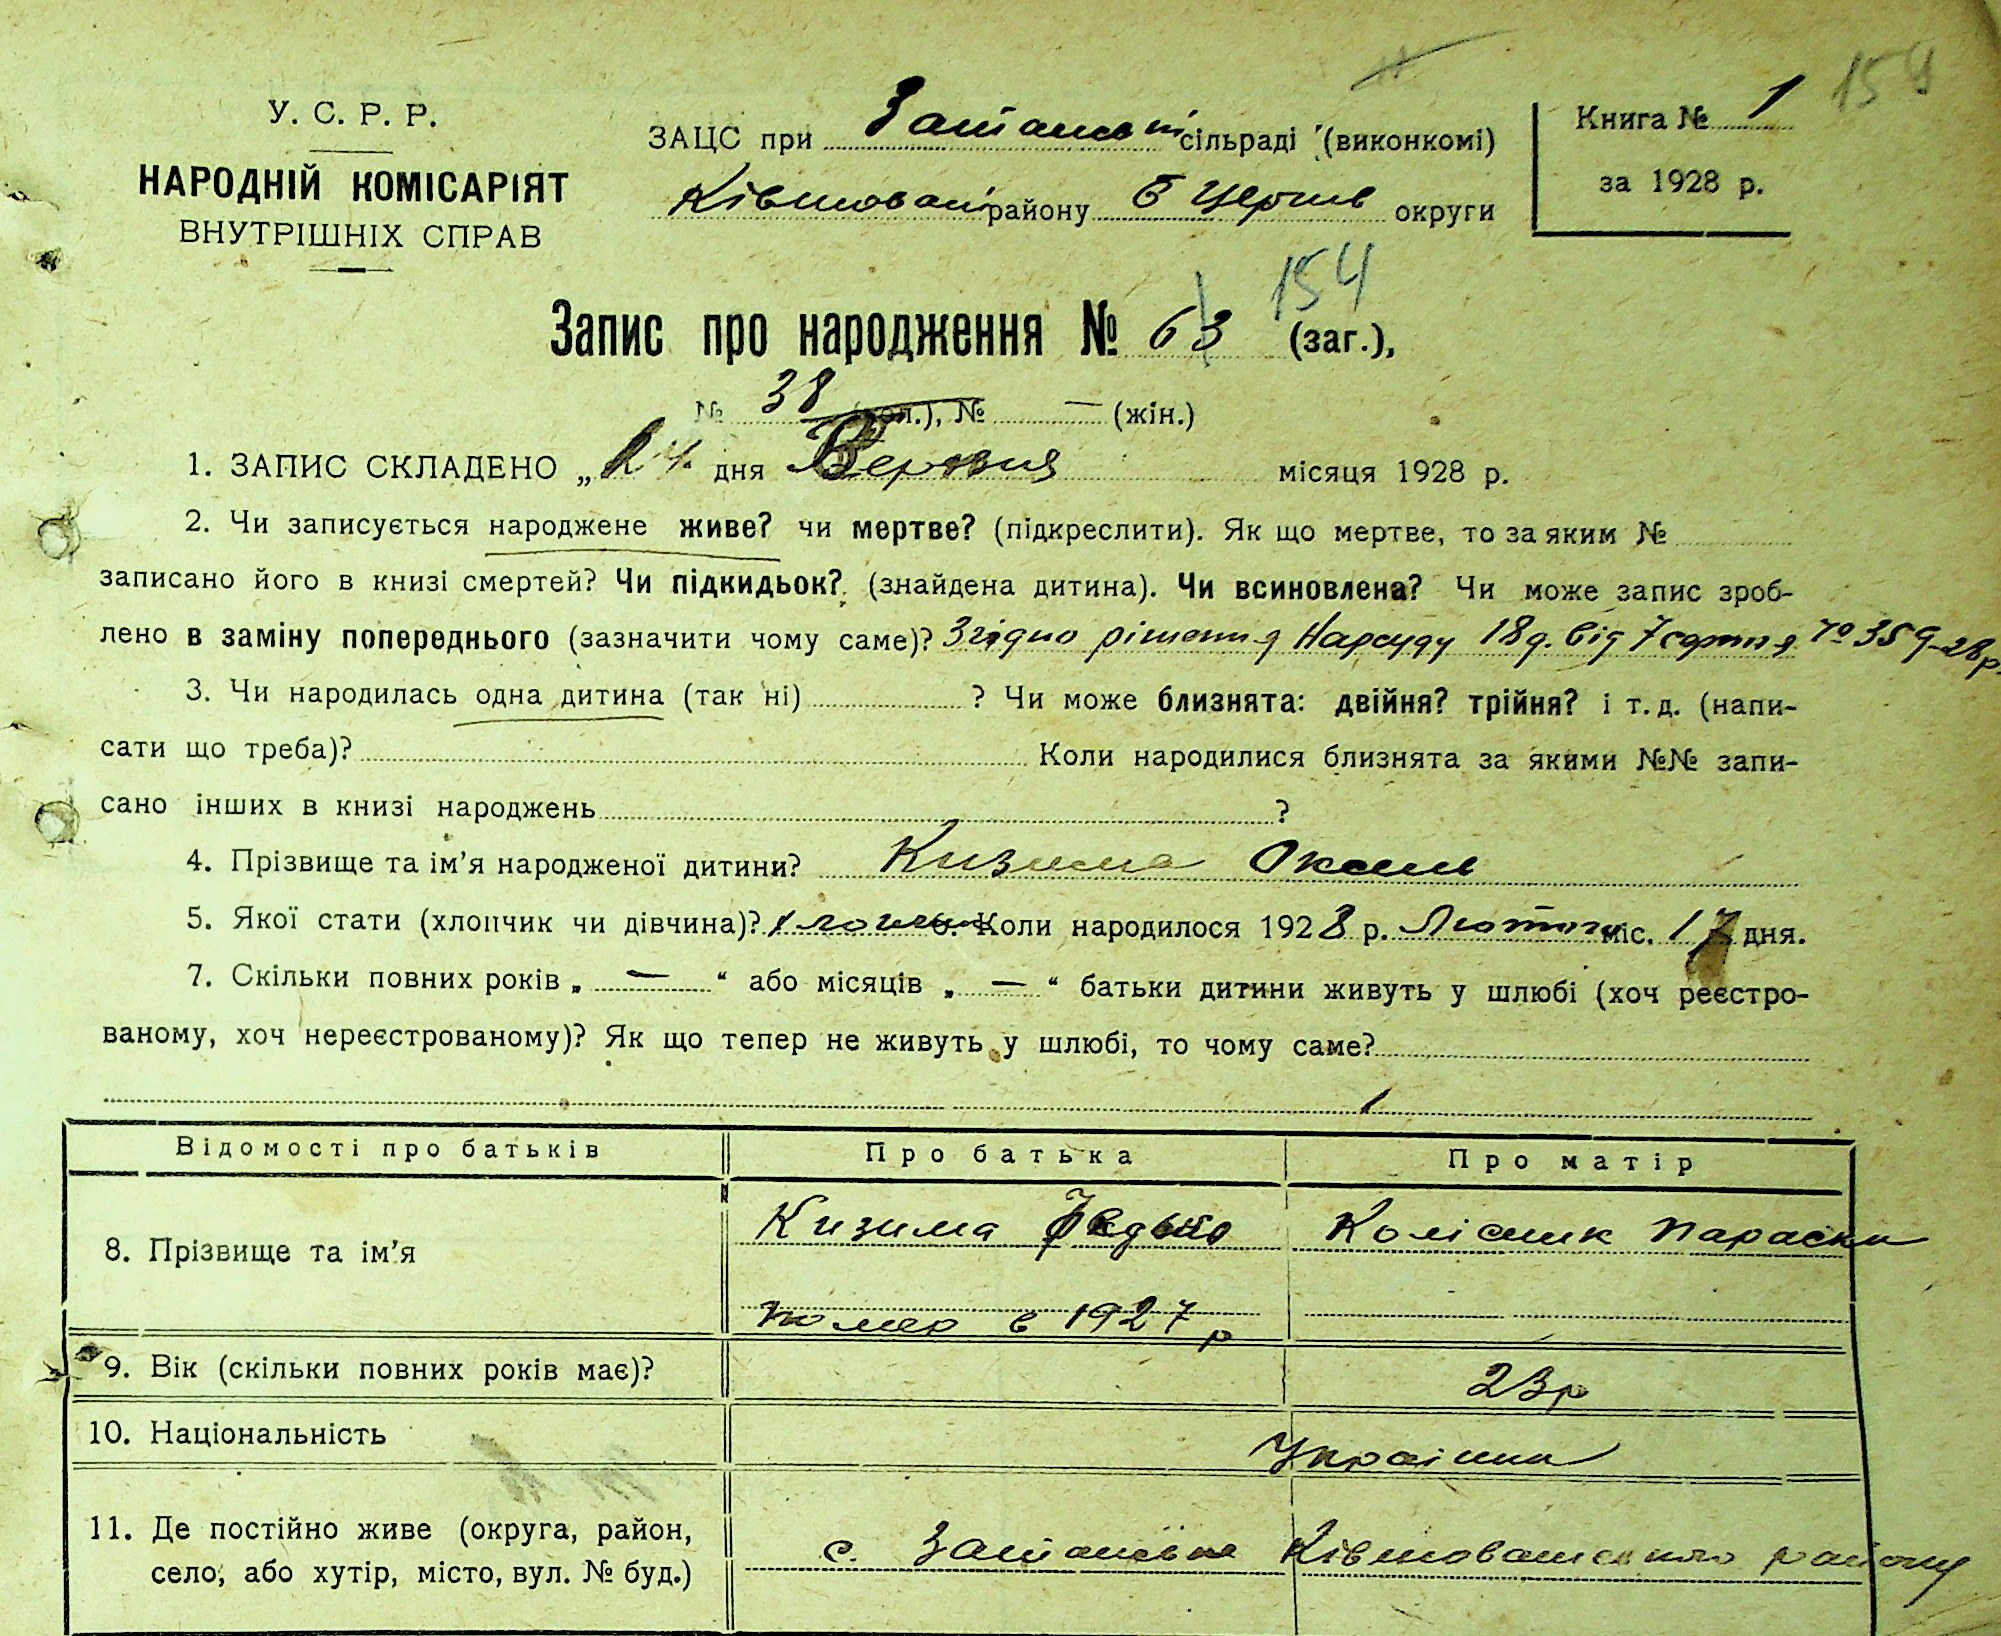 154
У. С. Р. Р.
НАРОДНІЙ КОМІСАРІЯТ
ВНУТРІШНІХ СПРАВ
ЗАЦС при сільраді (виконкомі)
Ківшоват району Б Церків округи
Книга № 1
за 1928 р.
154
Запис про народження № 63 (заг.),
№ 38 (чол.), № — (жін.)
1. ЗАПИС СКЛАДЕНО „24 дня Вересня місяця 1928 р.
2. Чи записується народжене живе? чи мертве? (підкреслити). Як що мертве, то за яким №
записано його в книзі смертей? Чи підкидьок? (знайдена дитина). Чи всиновлена? Чи може запис зроб-
лено в заміну попереднього (зазначити чому саме)? Згідно рішення Нарсуду 18д. від 7 серпня № 359-28р.
3. Чи народилась одна дитина (так ні) ? Чи може близнята: двійня? трійня? і т. д. (напи-
сати що треба)? Коли народилися близнята за якими №№ запи-
сано інших в книзі народжень ?
4. Прізвище та ім’я народженої дитини? Кизима
5. Якої стати (хлопчик чи дівчина)? хлопчик 6. Коли народилося 1928 р. Лютого міс. 17 дня.
7. Скільки повних років „ — “ або місяців „ — “ батьки дитини живуть у шлюбі (хоч реєстро-
ваному, хоч нереєстрованому)? Як що тепер не живуть у шлюбі, то чому саме?
Відомості про батьків Про батька Про матір
8. Прізвище та ім’я Кизима Федько Колісник Параска
помер в 1927 р
9. Вік (скільки повних років має)? 23р
10. Національність Українка
11. Де постійно живе (округа, район,
село, або хутір, місто, вул. № буд.) с. Ківшоватського району